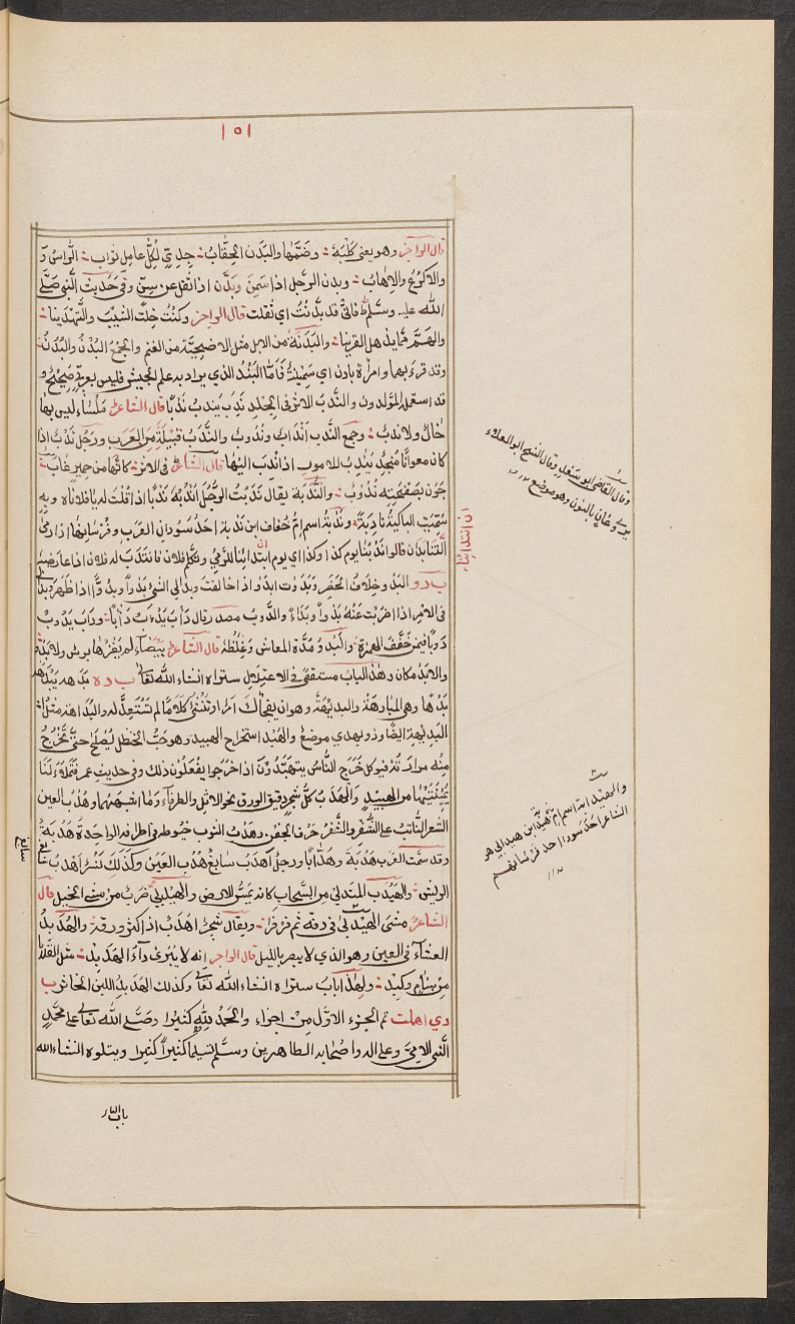 ١٥١
قال الراجز وهو يعنى كلبة وضمّها والبدن الحقاب جدّى لكلّ عامل ثواب الرّاس و
والاكرع والاهاب وبدن الرجل اذا سمن وبدّن اذا ثقل عن سنّ وفى حديث النّبى صلّى
الله عليه وسلّم فانّى قد بدّنت اى ثقلت قال الراجز وكنت خلت الشيب والتّبدينا
والهمّ ممّا يذهل القرينا والبدنة من الابل مثل الاضحيّة من الغنم والجمع البُدْن والبُدُن
وقد قرء بهما وامرأة بادن اى سمينة فامّا البند الذي يراد به علم الجيش فليس بعربىّ صحيح و
قد استعمله المولّدون والنّدب الاثر فى الجلد ندب يندب ندبًا قال الشاعر ملساء ليس بها
خال ولا ندب وجمع النّدب انداب وندوب والنّدب قبيلة من العرب ورجل ندب اذا
كان معوانًا منجدًا ينتدب للامور اذا ندب اليها قال الشاعر فى الاثر كانّها من حمير غاب
جون بصفحته ندوب والنّدبة يقال ندبت الرّجل اندبه ندبًا اذا قلت له يا فلاناه وبه
سمّيت الباكية نادبة وندبة اسم امّ خفاف ابن ندبة احد سودان العرب وفرسانها اذا رمى
القتنابذان قالوا ندبنا يوم كذا وكذا اى يوم ابتدائنا للرّمى وتكلّم فلان فانتدب له فلان اذا عارضه
ب د و البدو خلاف الحضر وبدوت ابدو اذا خالفت وبدا لى الشئ بدوًا وبدوًّا اذا ظهر وبدا لى
فى الامر اذا اضربت عنه بدوًا وبداءً والدّوب مصدر يقال دأب يدءب دأبًا وداب يدوب
دوبًا فيمن خفّف الهمزة والبدو مدّة المعاش وغلظه قال الشاعر بيضاء لم يغرها بوش ولا بدو
والابد مكان وهذا الباب مستقصى فى الاعتلال ستراه انشاء الله تعالى ب د ه بده يبده
بدهًا وهى المبادهة والبديهة وهو ان يفجأك امر او تنشئ كلامًا لم تستعدّ له والبداهة مثل
البديهة ايضًا وذو بهدى موضع والهبد استخراج الهبيد وهو حبّ الحنظل يصلح حتّى تخرج
منه مرارته فيوكل خرج النّاس يتهبّدون اذا خرجوا يفعلون ذلك وفى حديث عمر
من الهبيد والهدب كلّ شجر دقيق الورق نحو الاثل والطرفاء وما اشبههما وهدب العين
الشعر النّابت على الشّفر والشّفر حرف الجفن وهدب الثوب خيوط فى اطرافه الواحدة هدبة
وقد سمّت العرب هدبة وهدّابًا ورجل اهدب سابغ هدب العين وكذلك نسر اهدب سابغ
الريش والهيدب المتدلى من السّحاب كانه يمسّ الارض والهيدبى ضرب من مشى الخيل قال
الشاعر مشى الهيدبى فى دفّه ثم فرفرا ويقال شجر اهدب اذا كثر ورقه والهدبد
العشاء فى العين وهو الذى لا يبصر بالليل قال الراجز انه لا يبرئ داء الهدبد مثل القلايا
من سنام وكبد ولهذا باب ستراه انشاء الله تعالى وكذلك الهدبد اللبن الخاثر ب
د ى اهملت تم الجزء الاوّل من اجزاء والحمد لله كثيرا وصلى الله تعالى على محمّد
النّبى الامىّ وعلى اله واصحابه الطاهرين وسلّم تسليما كثيرًا كثيرا ويتلوه انشاء الله
باب الباء
وقال القاضى ابو سعيد وقال الشيخ ابو العلاء
بالنون وهو موضع
ان ابتداء
الشاعر احد سودان احد فرسانهم
سابغ